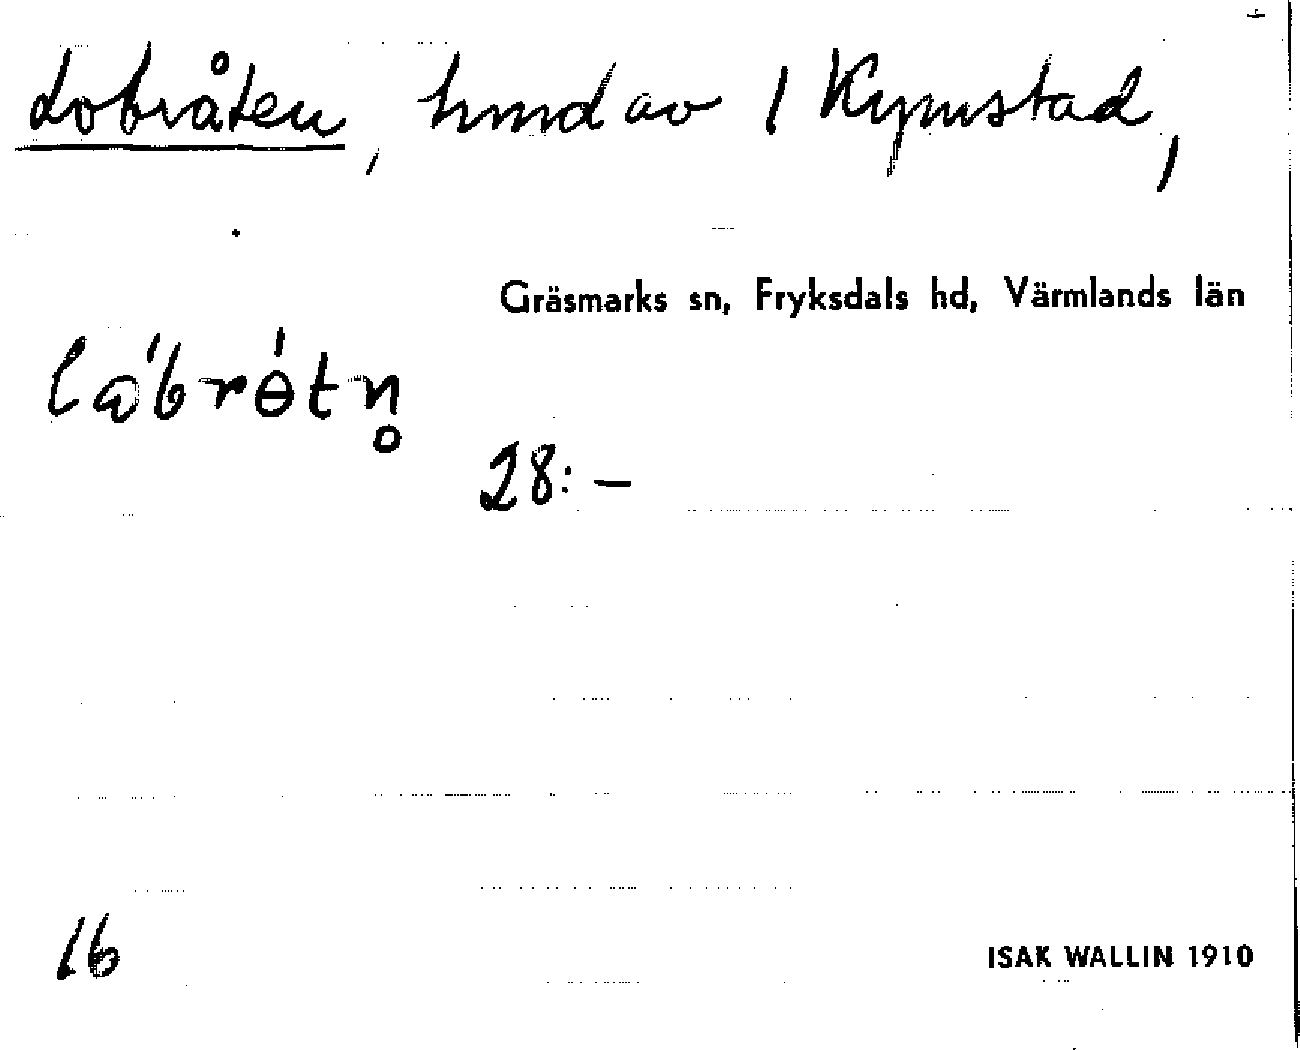 Lobråten, hmd av 1 Kymstad,
Gräsmarks sn, Fryksdals hd, Värmlands län
28:-
16
ISAK WALLIN 1910